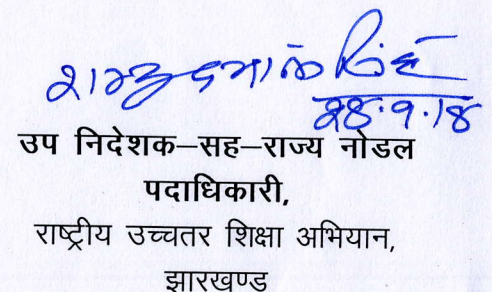 शम्भु दयाल सिंह
28.9.18
उप निदेशक–सह–राज्य नोडल
पदाधिकारी,
राष्ट्रीय उच्चतर शिक्षा अभियान,
झारखण्ड